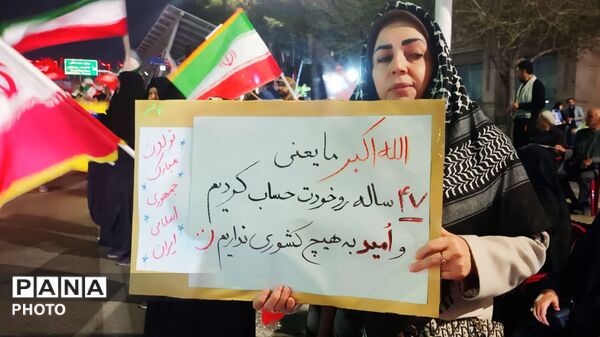 الله اکبر ما یعنی
۴۷ ساله رو خودت حساب کردیم
و امید به هیچ کشوری نداریم
تولدت
مبارک
جمهوری
اسلامی
ایران
PANA
PHOTO